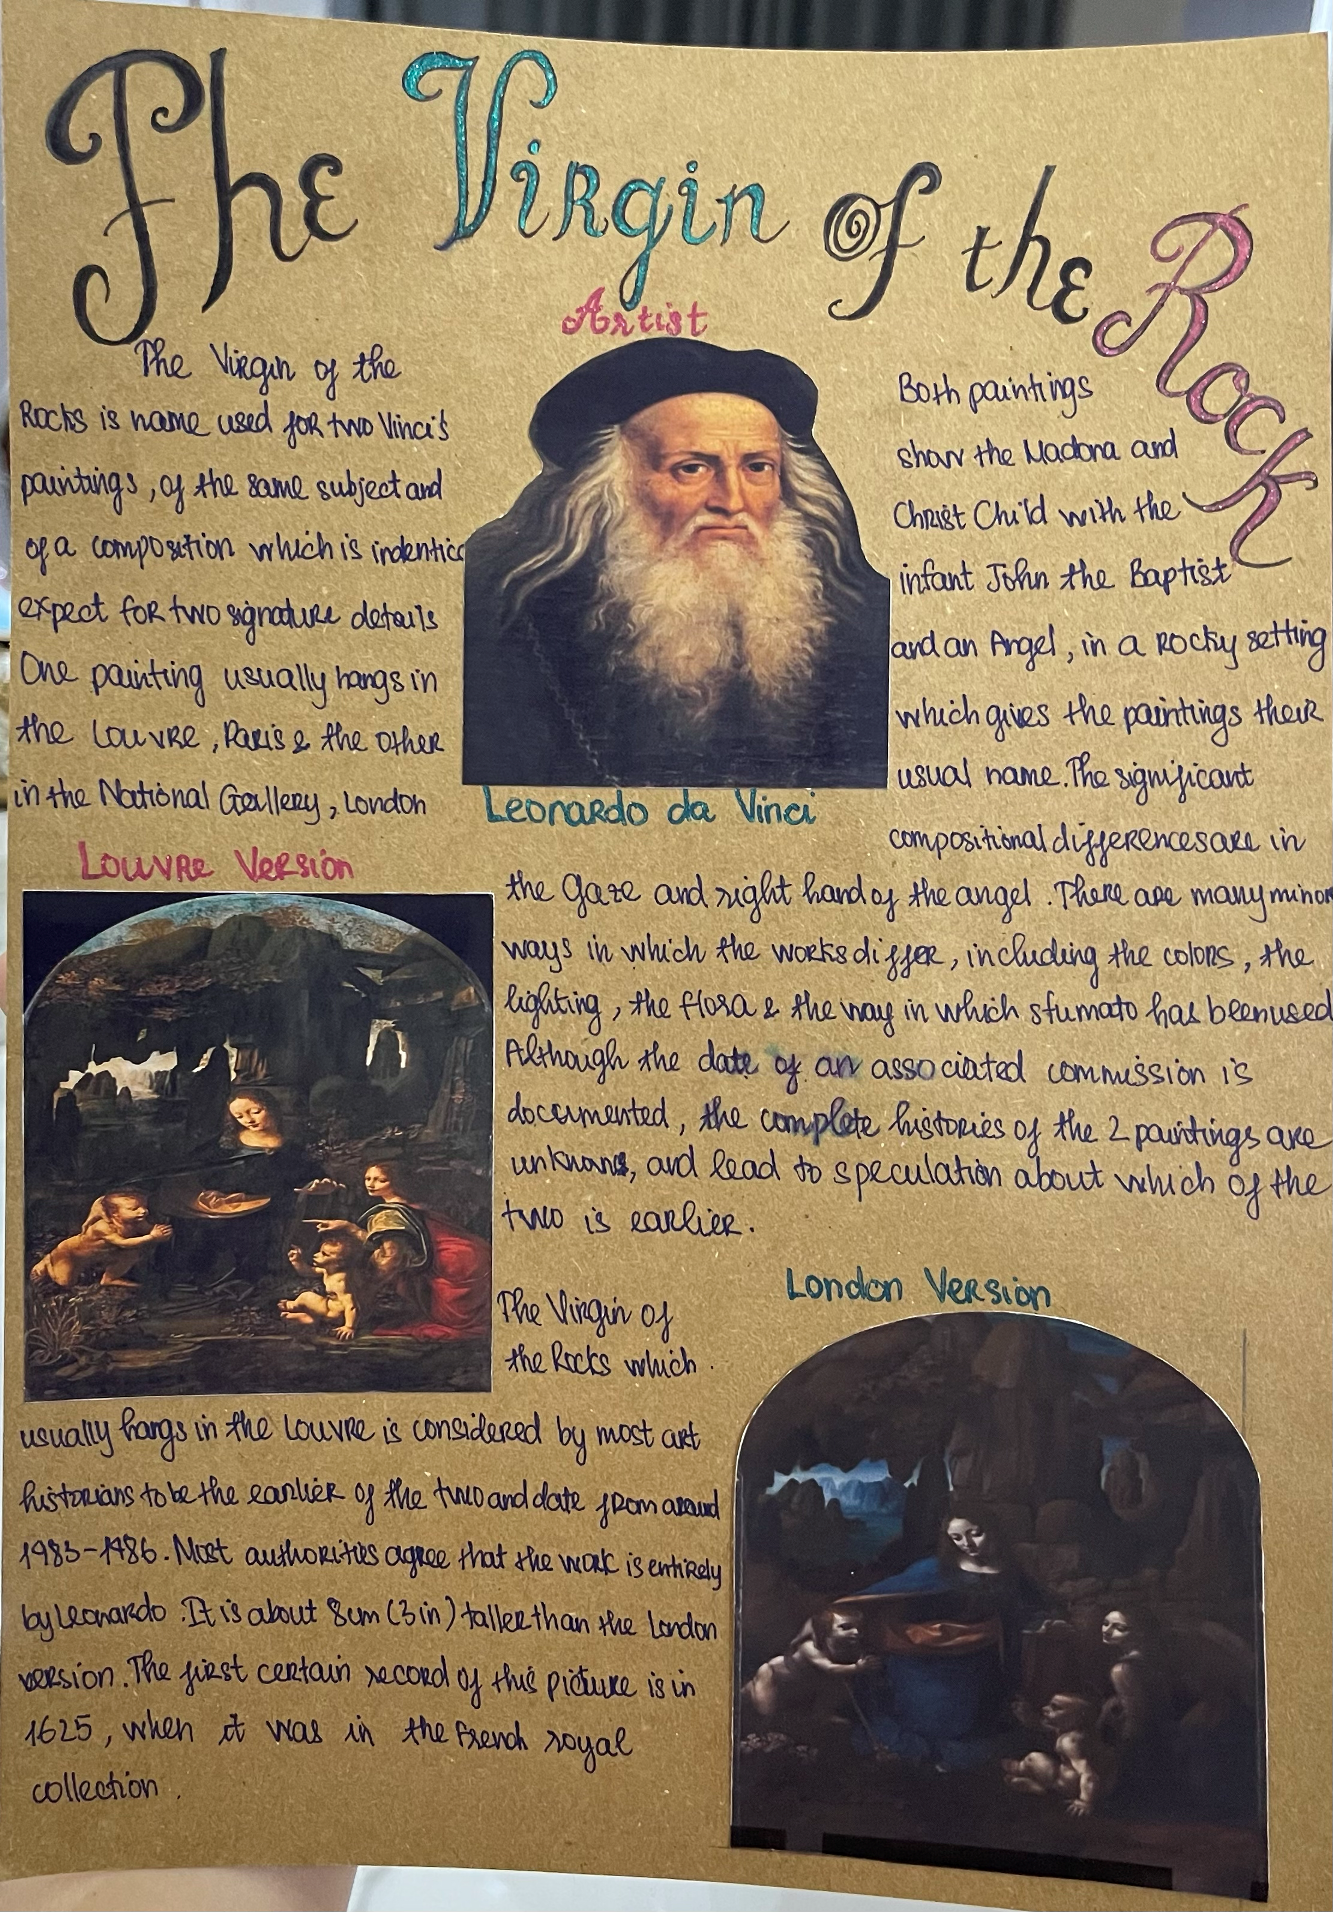 The Virgin of the Rock
Artist
The Virgin of the
Rocks is name used for two Vinci's
paintings, of the same subject and
of a composition which is indentic
expect for two signature details
One painting usually hangs in
the Louvre, Paris & the other
in the National Gallery, London
Leonardo da Vinci
Both paintings
show the Madona and
Christ Child with the
infant John the Baptist
and an Angel, in a rocky setting
which gives the paintings their
usual name. The significant
compositional differences are in
the gaze and right hand of the angel. There are many minor
ways in which the works differ, including the colors, the
lighting, the flora & the way in which sfumato has been used
Although the date of an associated commission is
documented, the complete histories of the 2 paintings are
unknowns, and lead to speculation about which of the
two is earlier.
Louvre Version
London Version
The Virgin of
the Rocks which
usually hangs in the Louvre is considered by most art
historians to be the earlier of the two and date from around
1983-1486. Most authorities agree that the work is entirely
by Leonardo. It is about 8cm (3 in) taller than the London
version. The first certain record of this picture is in
1625, when it was in the French royal
collection.